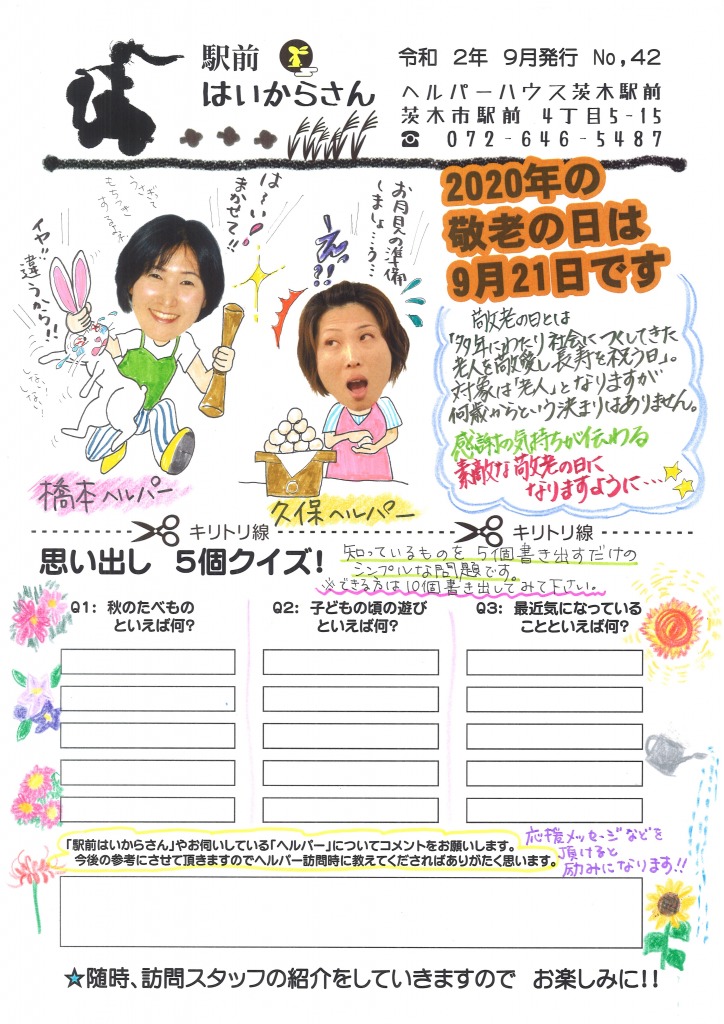 駅前
はいからさん
令和 2年 9月発行 No,42
ヘルパーハウス茨木駅前
茨木市駅前 4丁目5-15
☎ 072-646-5487
2020年の
敬老の日は
9月21日です
うさぎって
もちつき
するよね
は〜い!
まかせて!!
イヤ!!
違うから!!
しない
しない
お月見の準備
しましょ…う…
えっ!?
橋本ヘルパー
久保ヘルパー
敬老の日とは
「多年にわたり社会につくしてきた
老人を敬愛し長寿を祝う日」。
対象は「老人」となりますが
何歳からという決まりはありません。
感謝の気持ちが伝わる
素敵な敬老の日に
なりますように…
キリトリ線
キリトリ線
思い出し 5個クイズ!
知っているものを5個書き出すだけの
シンプルな問題です。
※できる方は10個書き出してみて下さい。
Q1: 秋のたべもの
といえば何?
Q2: 子どもの頃の遊び
といえば何?
Q3: 最近気になっている
ことといえば何?
「駅前はいからさん」やお伺いしている「ヘルパー」についてコメントをお願いします。
今後の参考にさせて頂きますのでヘルパー訪問時に教えてくださればありがたく思います。
応援メッセージなどを
頂けると
励みになります!!
★随時、訪問スタッフの紹介をしていきますので お楽しみに!!